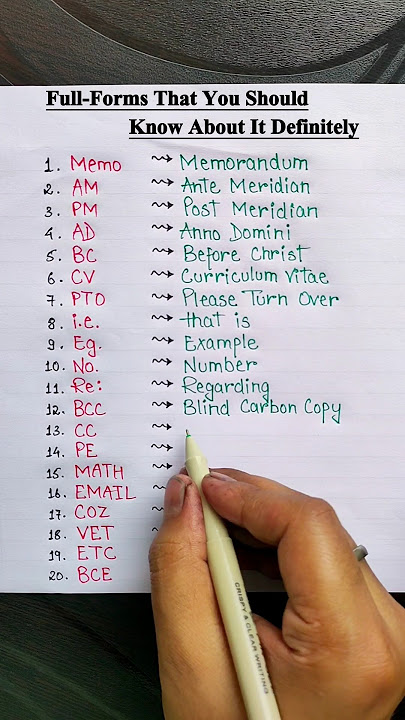 Full-Forms That You Should
Know About It Definitely
1. Memo ⇝ Memorandum
2. AM ⇝ Ante Meridian
3. PM ⇝ Post Meridian
4. AD ⇝ Anno Domini
5. BC ⇝ Before Christ
6. CV ⇝ Curriculum Vitae
7. PTO ⇝ Please Turn Over
8. i.e. ⇝ that is
9. Eg. ⇝ Example
10. No. ⇝ Number
11. Re: ⇝ Regarding
12. BCC ⇝ Blind Carbon Copy
13. CC ⇝
14. PE ⇝
15. MATH ⇝
16. EMAIL
17. COZ
18. VET
19. ETC
20. BCE
CRISPY & CLEAR WRITING